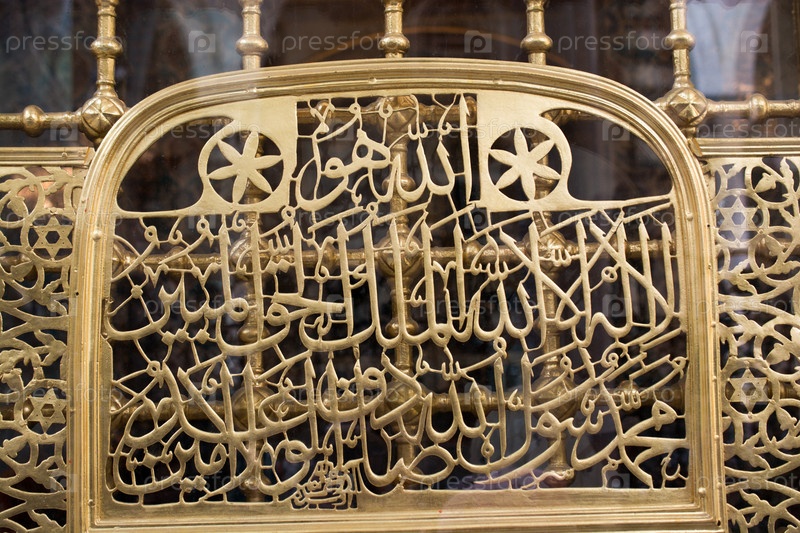 pressfoto pressfoto pressfoto
الله هو
لا إله إلا الله الملك الحق المبين
محمد رسول الله صادق الوعد الأمين